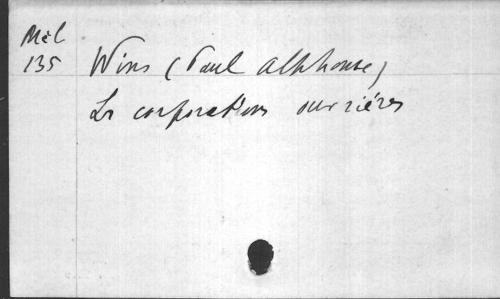 Mél
135
Wins (Paul Alphonse)
Les corporations ouvrières